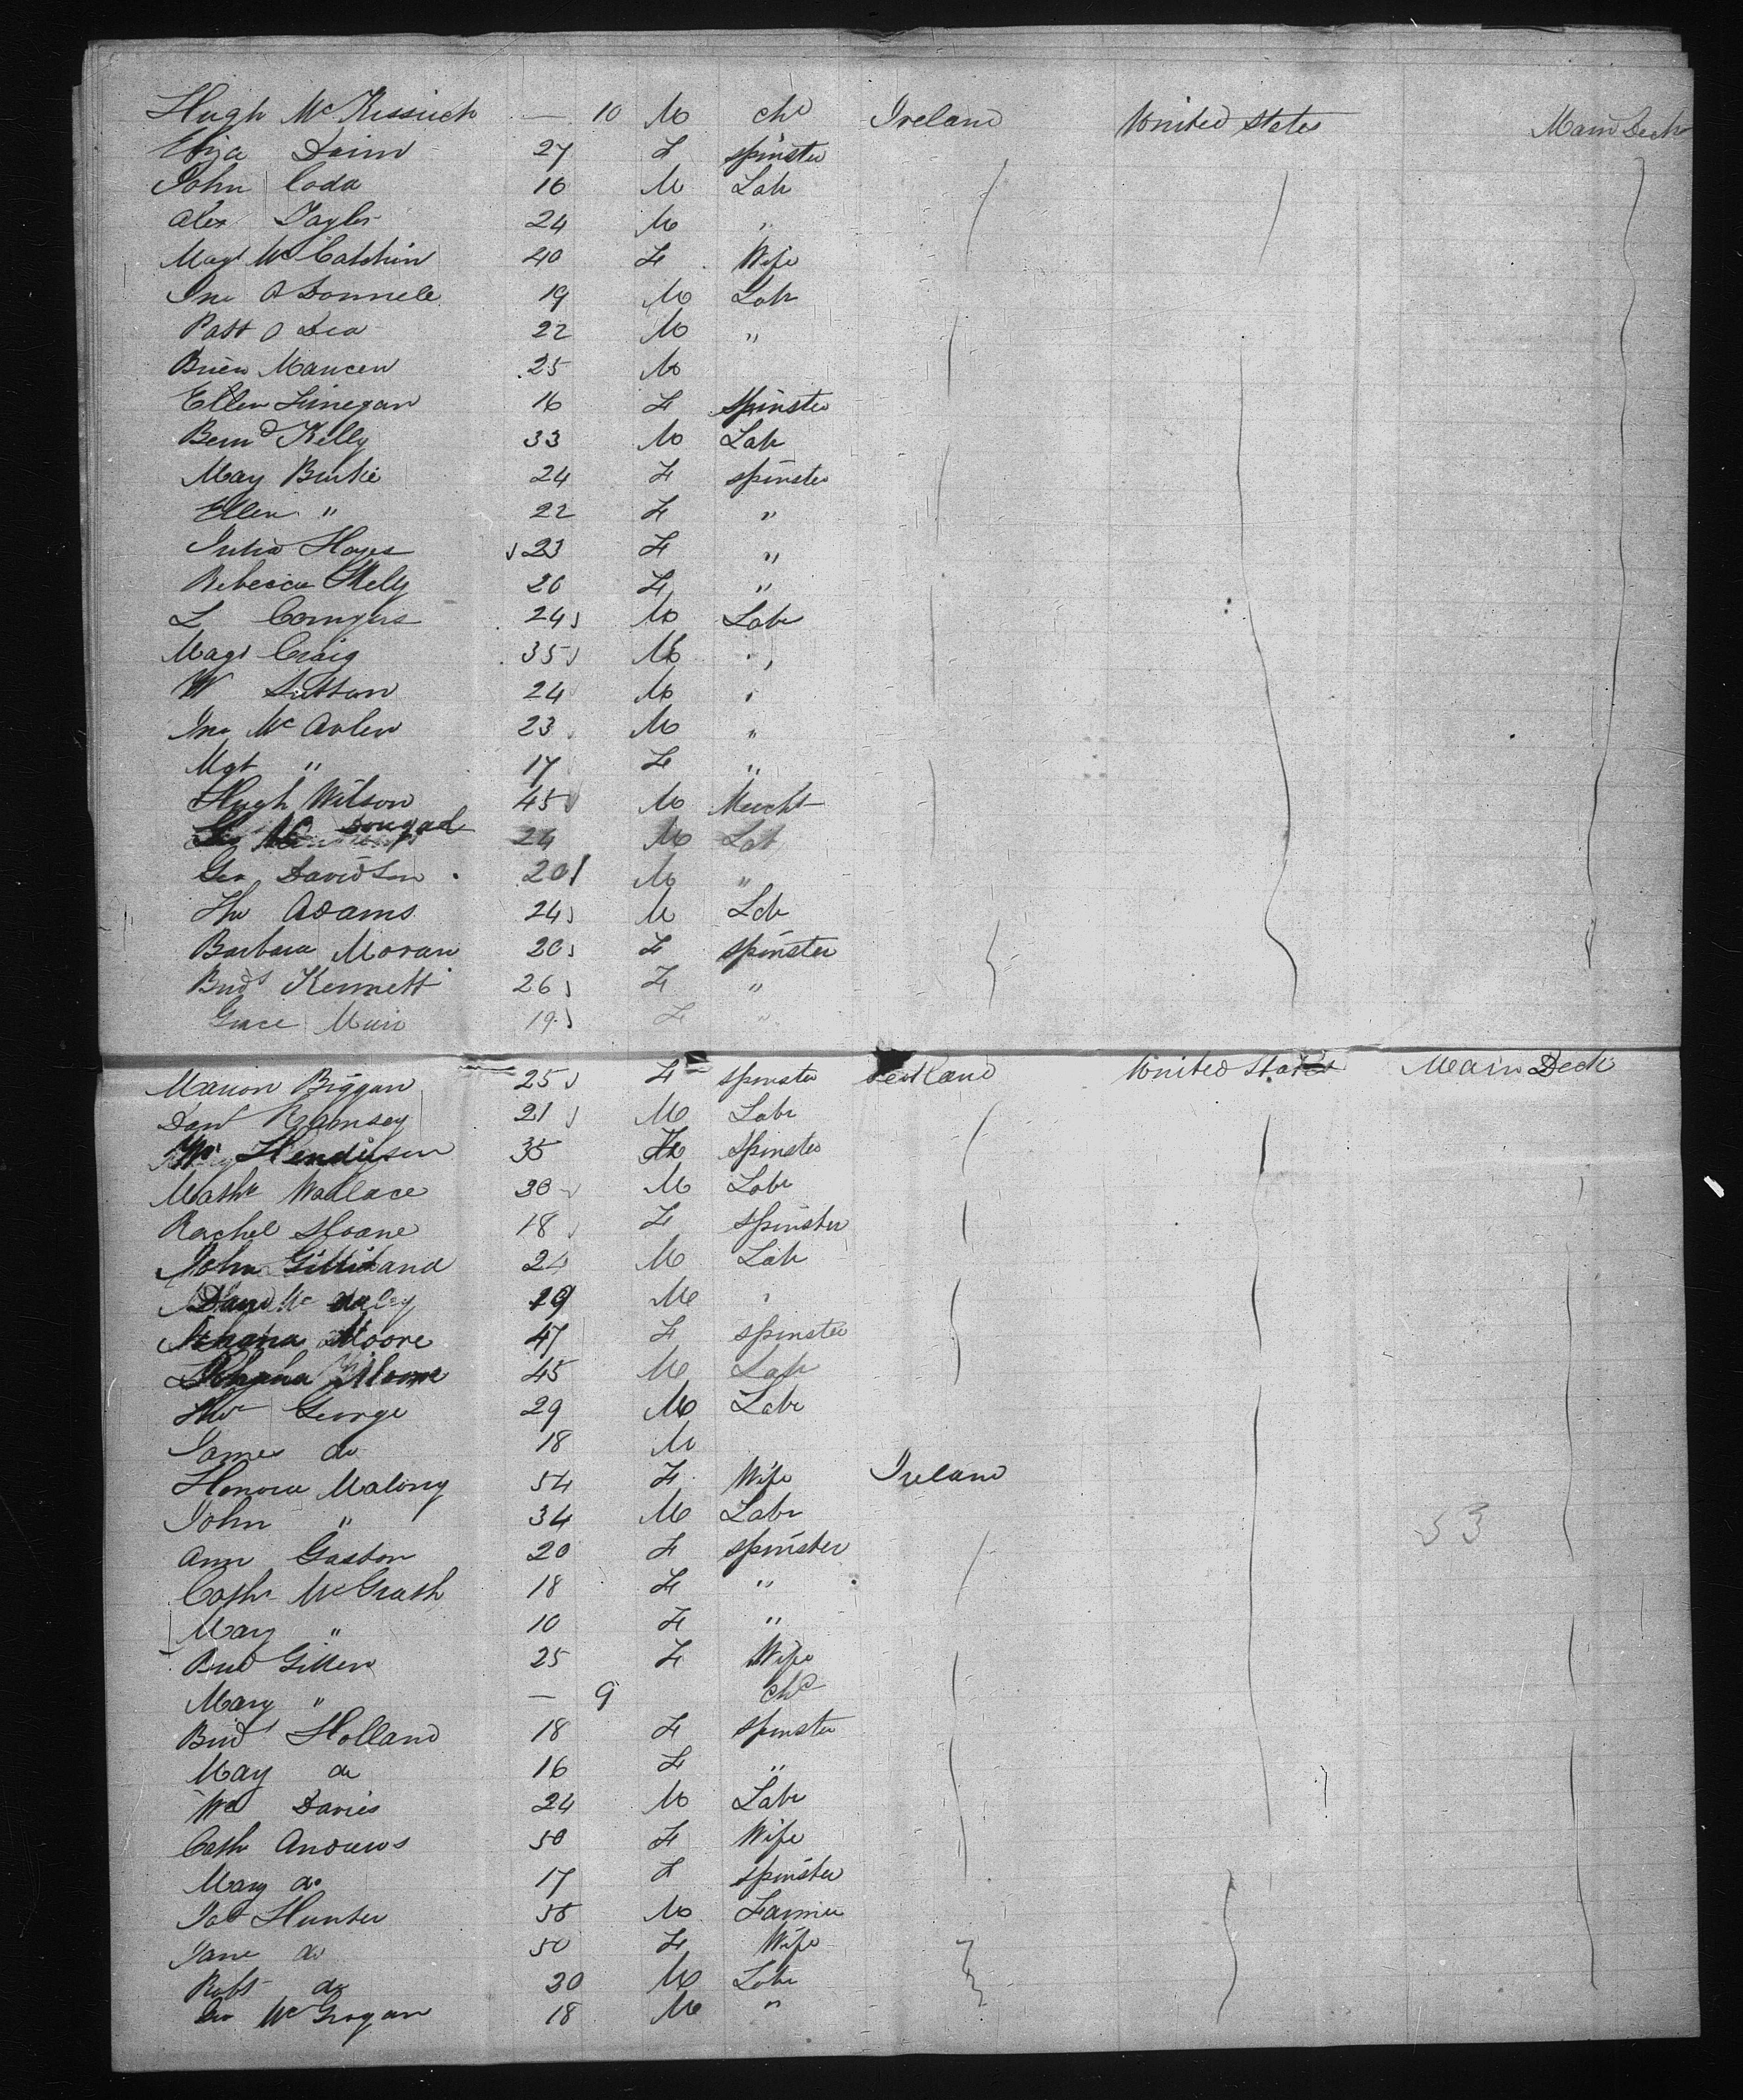 Hugh McKissick — 10 M chd Ireland United States Main Deck
Eliza Dunn 27 F spinster
John Coda 16 M Labr
Alex Taylor 24 M "
Magt McCatchin 40 F Wife
Jno O Donnell 19 M Labr
Patt O Dea 22 M "
Brien Mancen 25 M
Ellen Finegan 16 F Spinster
Bernd Kelly 33 M Labr
May Burke 24 F spinster
Ellen " 22 F "
Julia Hayes 23 F "
Rebecca Kelly 20 F "
L Comyns 24 M Labr
Magt Craig 35 M "
W Sutton 24 M "
Jno Mc Aulen 23 M "
Mgt " 17 F "
Hugh Wilson 45 M Mercht
Dougad 24 M Lab
Geo Davidson 20 M "
Tho Adams 24 M Lab
Barbara Moran 20 F spinster
Bridt Kennett 26 F "
Grace Muir 19 F "
Marion Biggan 25 F spinster Scotland United States Main Deck
Davd Ramsey 21 M Labr
Henderson 35 spinster
Mathw Wallace 30 M Labr
Rachel Sloane 18 F Spinster
John Gilliland 24 M Lab
David Mc 19 M "
Moore 47 F spinster
45 M Lab
Thos George 29 M Labr
James do 18 M
Honora Malony 54 F Wife Ireland
John " 34 M Labr
53
Ann Gaston 20 F spinster
Cathe McGrath 18 F "
Mary " 10 F "
Brid Gillen 25 F Wife
Mary " — 9 chd
Bridt Holland 18 F spinster
May do 16 F "
Wm Davies 24 M Labr
Cath Andrews 50 F Wife
Mary do 17 F spinster
Jas Hunter 55 M Farmer
Jane do 50 F Wife
Robt do 30 M Labr
Geo McGrogan 18 M "